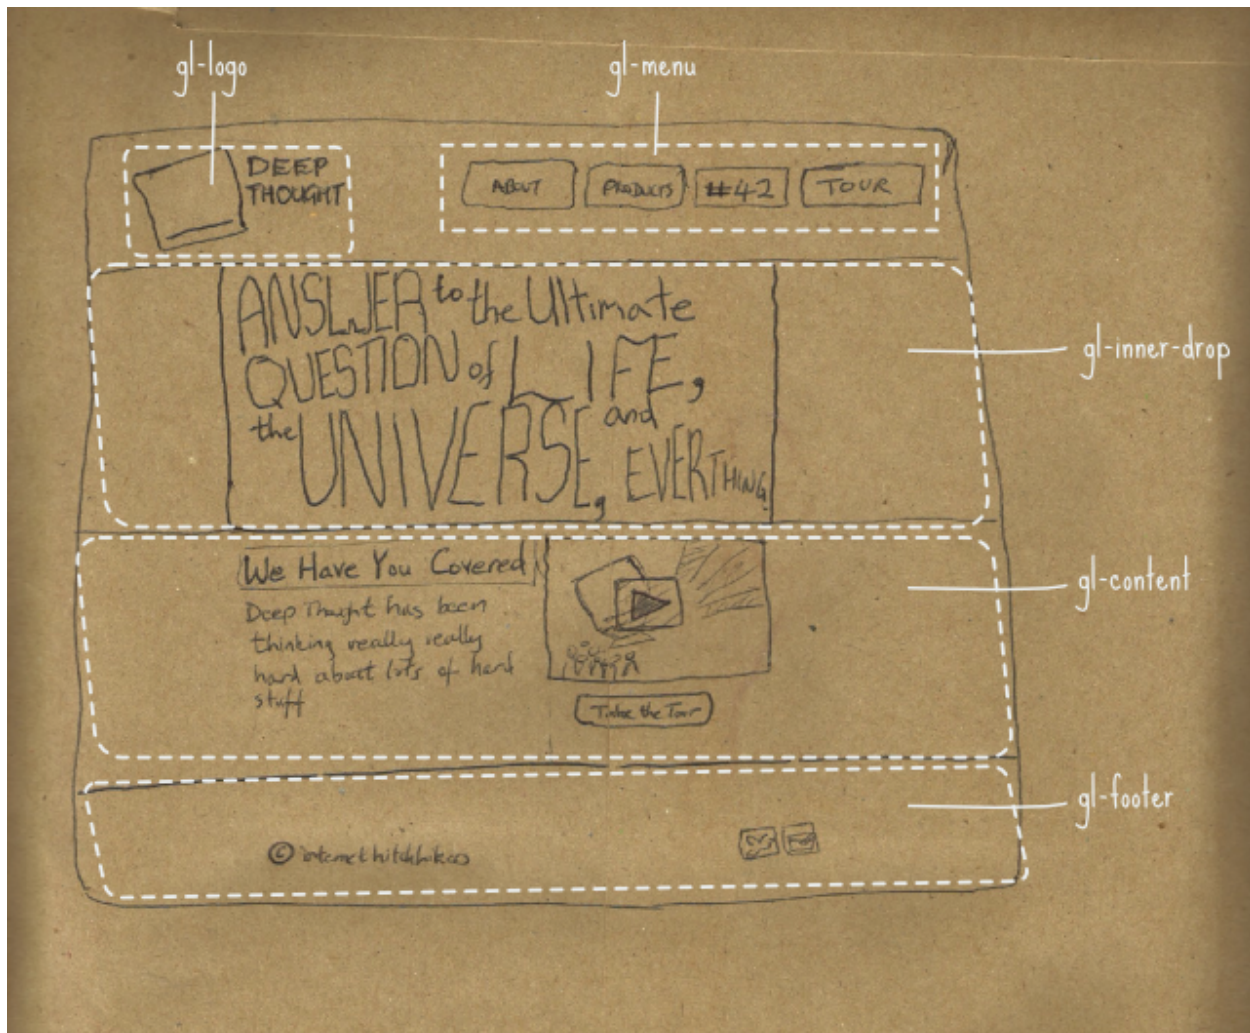 gl-logo
gl-menu
DEEP
THOUGHT
ABOUT
PRODUCTS
#42
TOUR
ANSWER to the Ultimate
QUESTION of LIFE,
the UNIVERSE, and EVERTHING
gl-inner-drop
We Have You Covered
Deep Thought has been
thinking really really
hard about lots of hard
stuff
Take the Tour
gl-content
gl-footer
© internet hitchhikers